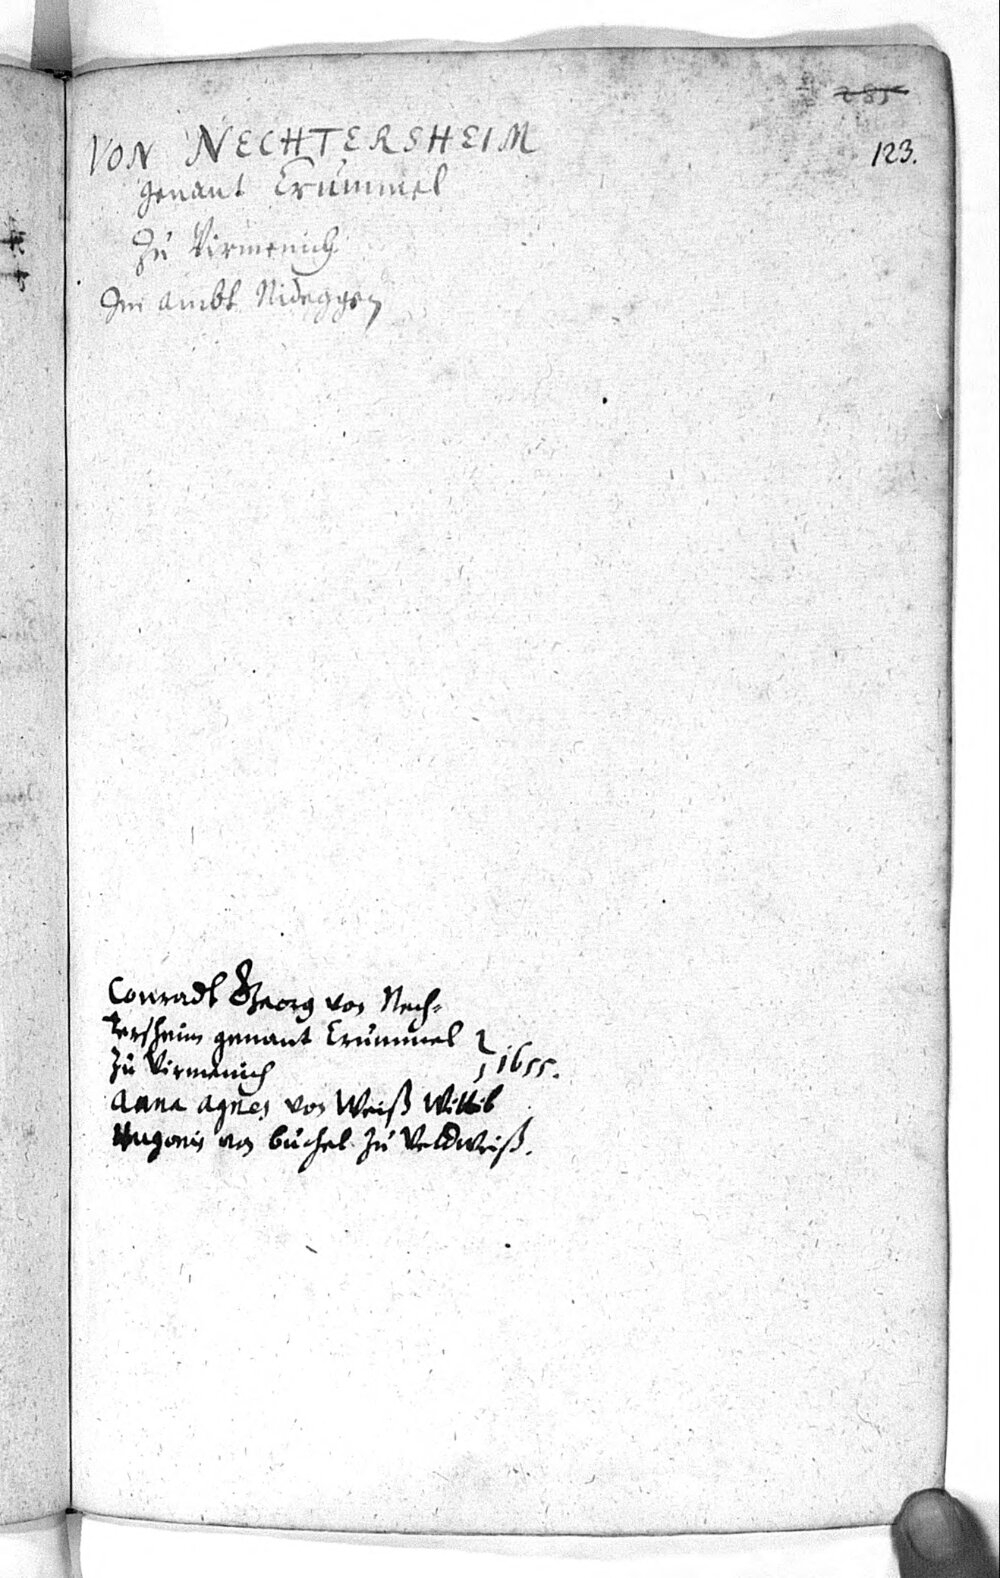 285
123.
VON NECHTERSHEIM
genant Crummel
Zu Virmenich
Im Ambt Nideggen
Conradt Georg von Nech-
tersheim genant Crummel
Zu Virmenich
1655.
Anna Agnes von Weiß Wittib
Hugonis von büchel Zu Veldweiß.